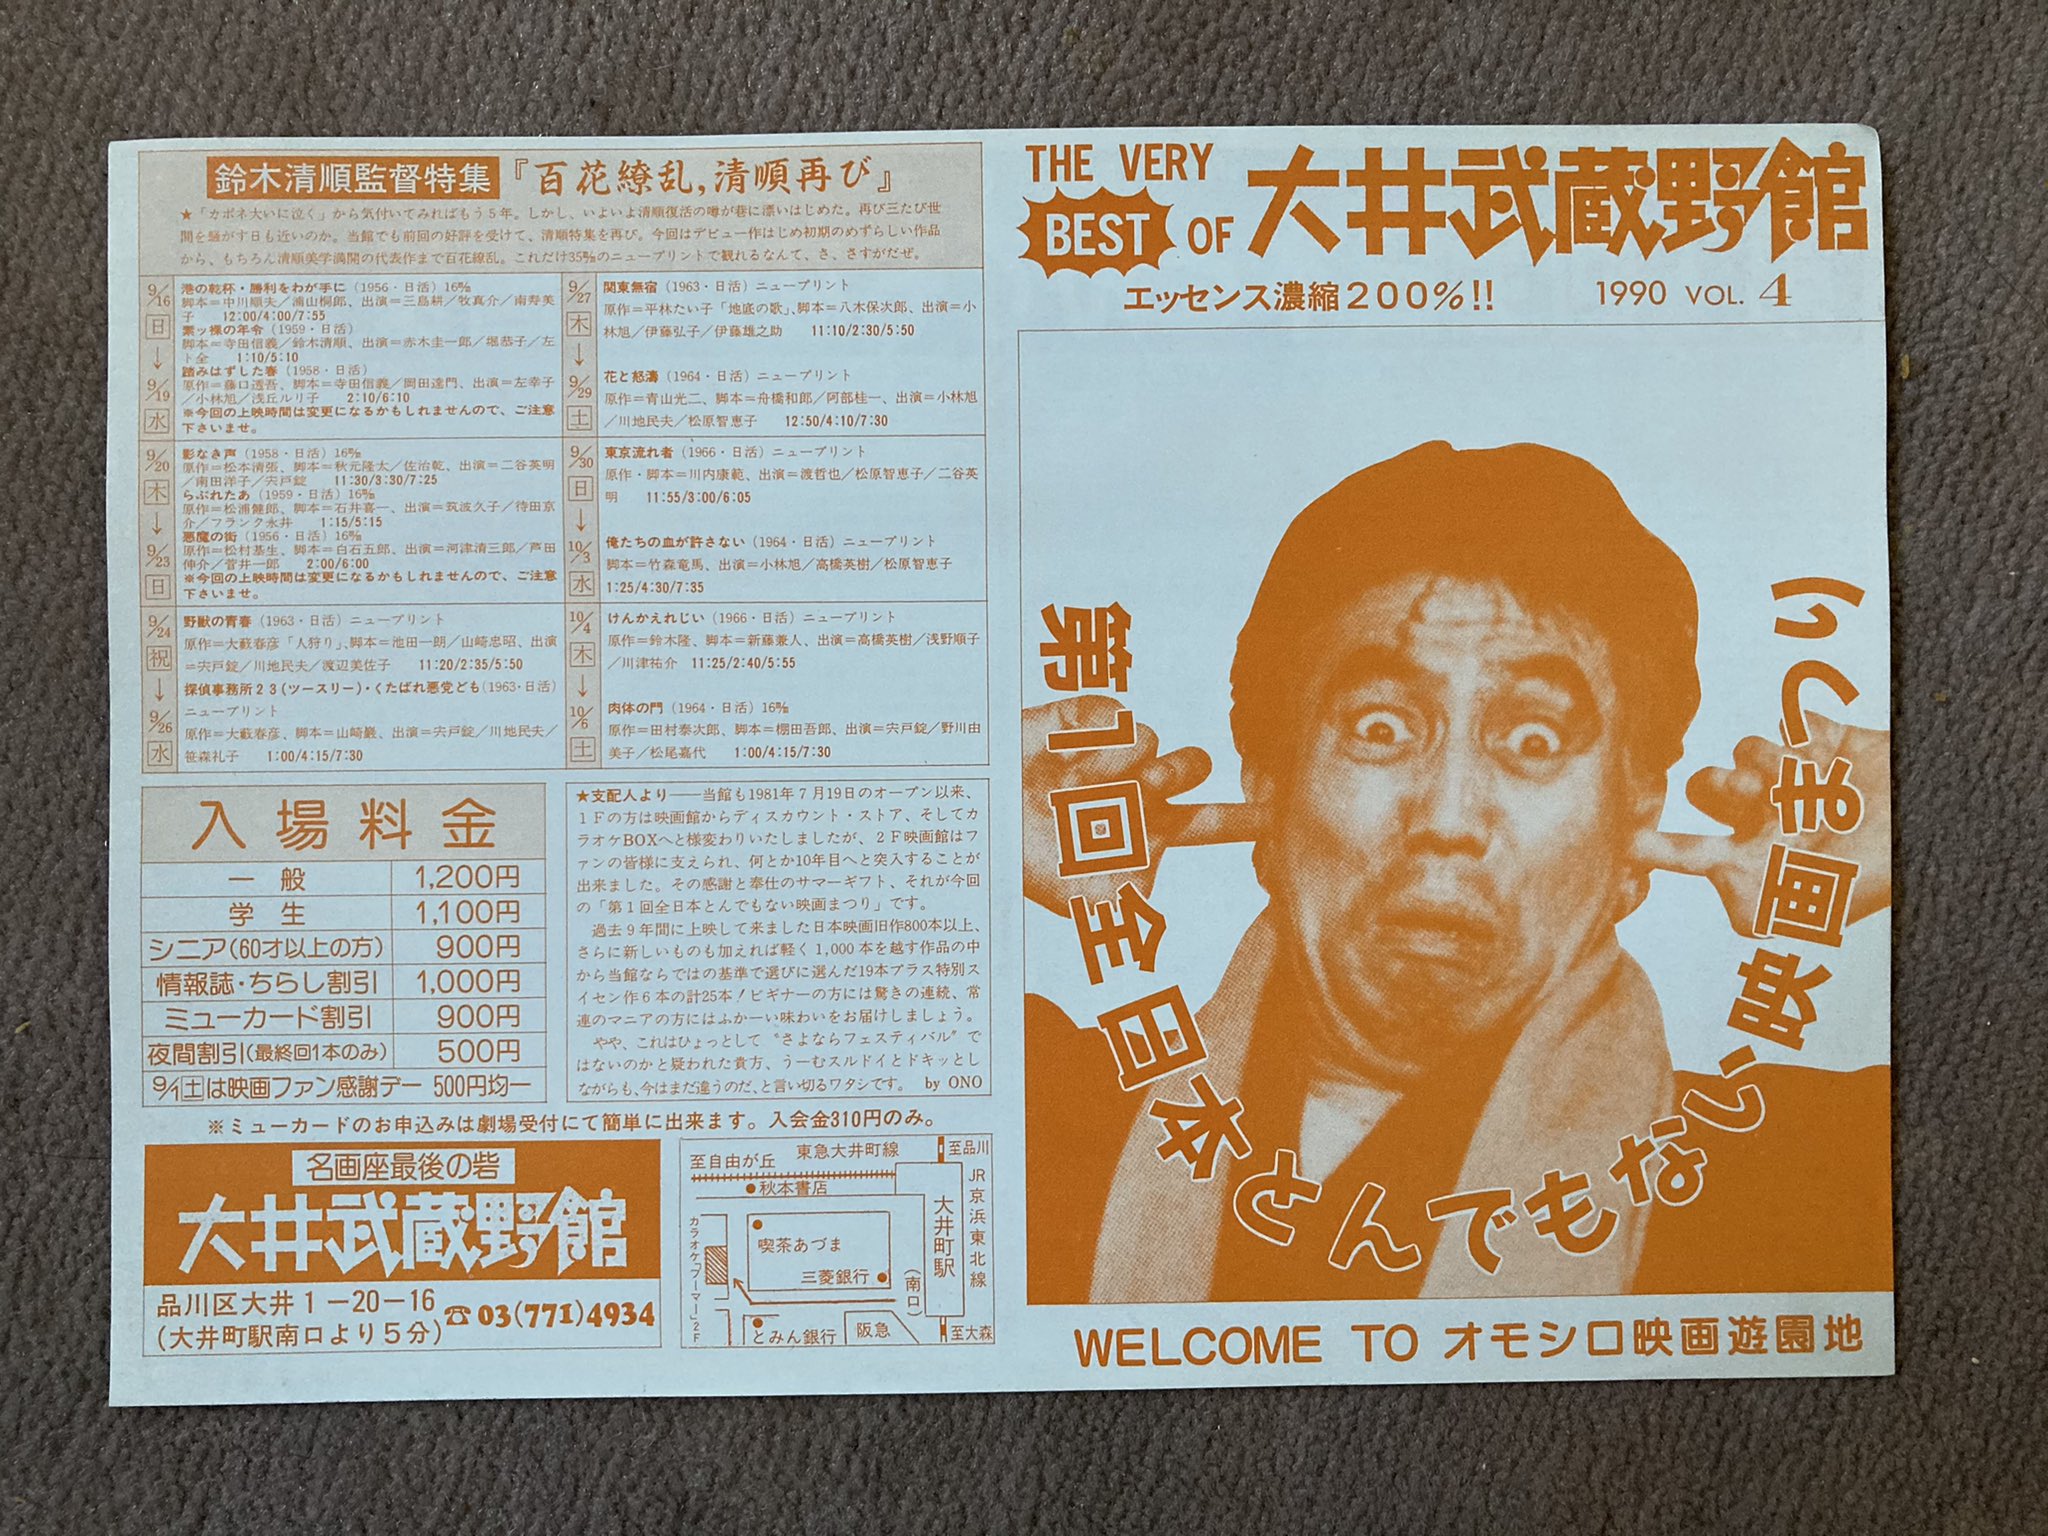 鈴木清順監督特集『百花繚乱,清順再び』
★「カポネ大いに泣く」から気付いてみればもう5年。しかし、いよいよ清順復活の噂が巷に漂いはじめた。再び三たび世
間を騒がす日も近いのか。当館でも前回の好評を受けて、清順特集を再び。今回はデビュー作はじめ初期のめずらしい作品
から、もちろん清順美学満開の代表作まで百花繚乱。これだけ35㎜のニュープリントで観れるなんて、さ、さすがだぜ。
9/16 日 ↓ 9/19 水
港の乾杯・勝利をわが手に(1956・日活)16㎜
脚本=中川順夫/浦山桐郎、出演=三島耕/牧真介/南寿美
子 12:00/4:00/7:55
素ッ裸の年令(1959・日活)
脚本=寺田信義/鈴木清順、出演=赤木圭一郎/堀恭子/左
ト全 1:10/5:10
踏みはずした春(1958・日活)
原作=藤口透吾、脚本=寺田信義/岡田達門、出演=左幸子
/小林旭/浅丘ルリ子 2:10/6:10
※今回の上映時間は変更になるかもしれませんので、ご注意
下さいませ。
9/20 木 ↓ 9/23 日
影なき声(1958・日活)16㎜
原作=松本清張、脚本=秋元隆太/佐治乾、出演=二谷英明
/南田洋子/宍戸錠 11:30/3:30/7:25
らぶれたあ(1959・日活)16㎜
原作=松浦健郎、脚本=石井喜一、出演=筑波久子/待田京
介/フランク永井 1:15/5:15
悪魔の街(1956・日活)16㎜
原作=松村基生、脚本=白石五郎、出演=河津清三郎/芦田
伸介/菅井一郎 2:00/6:00
※今回の上映時間は変更になるかもしれませんので、ご注意
下さいませ。
9/24 祝 ↓ 9/26 水
野獣の青春(1963・日活)ニュープリント
原作=大藪春彦「人狩り」、脚本=池田一朗/山崎忠昭、出演
=宍戸錠/川地民夫/渡辺美佐子 11:20/2:35/5:50
探偵事務所23(ツースリー)・くたばれ悪党ども(1963・日活)
ニュープリント
原作=大藪春彦、脚本=山崎巌、出演=宍戸錠/川地民夫/
笹森礼子 1:00/4:15/7:30
9/27 木 ↓ 9/29 土
関東無宿(1963・日活)ニュープリント
原作=平林たい子「地底の歌」、脚本=八木保次郎、出演=小
林旭/伊藤弘子/伊藤雄之助 11:10/2:30/5:50
花と怒濤(1964・日活)ニュープリント
原作=青山光二、脚本=舟橋和郎/阿部桂一、出演=小林旭
/川地民夫/松原智恵子 12:50/4:10/7:30
9/30 日 ↓ 10/3 水
東京流れ者(1966・日活)ニュープリント
原作・脚本=川内康範、出演=渡哲也/松原智恵子/二谷英
明 11:55/3:00/6:05
俺たちの血が許さない(1964・日活)ニュープリント
脚本=竹森竜馬、出演=小林旭/高橋英樹/松原智恵子
1:25/4:30/7:35
10/4 木 ↓ 10/6 土
けんかえれじい(1966・日活)ニュープリント
原作=鈴木隆、脚本=新藤兼人、出演=高橋英樹/浅野順子
/川津祐介 11:25/2:40/5:55
肉体の門(1964・日活)16㎜
原作=田村泰次郎、脚本=棚田吾郎、出演=宍戸錠/野川由
美子/松尾嘉代 1:00/4:15/7:30
入場料金
一般 1,200円
学生 1,100円
シニア(60才以上の方) 900円
情報誌・ちらし割引 1,000円
ミューカード割引 900円
夜間割引(最終回1本のみ) 500円
9/1土は映画ファン感謝デー 500円均一
※ミューカードのお申込みは劇場受付にて簡単に出来ます。入会金310円のみ。
★支配人より――当館も1981年7月19日のオープン以来、
1Fの方は映画館からディスカウント・ストア、そしてカ
ラオケBOXへと様変わりいたしましたが、2F映画館はフ
ァンの皆様に支えられ、何とか10年目へと突入することが
出来ました。その感謝と奉仕のサマーギフト、それが今回
の「第1回全日本とんでもない映画まつり」です。
過去9年間に上映して来ました日本映画旧作800本以上、
さらに新しいものも加えれば軽く1,000本を越す作品の中
から当館ならではの基準で選びに選んだ19本プラス特別ス
イセン作6本の計25本!ビギナーの方には驚きの連続、常
連のマニアの方にはふかーい味わいをお届けしましょう。
やや、これはひょっとして“さよならフェスティバル”で
はないのかと疑われた貴方、うーむスルドイとドキッとし
ながらも、今はまだ違うのだ、と言い切るワタシです。 by ONO
名画座最後の砦
大井武蔵野館
品川区大井1-20-16
(大井町駅南口より5分)
☎03(771)4934
至自由が丘
東急大井町線
至品川
秋本書店
JR京浜東北線
大井町駅
(南口)
カラオケ「ブーマー」2F
喫茶あづま
三菱銀行
とみん銀行
阪急
至大森
THE VERY
BEST OF 大井武蔵野館
エッセンス濃縮200%!!
1990 VOL. 4
第1回全日本とんでもない映画まつり
WELCOME TO オモシロ映画遊園地